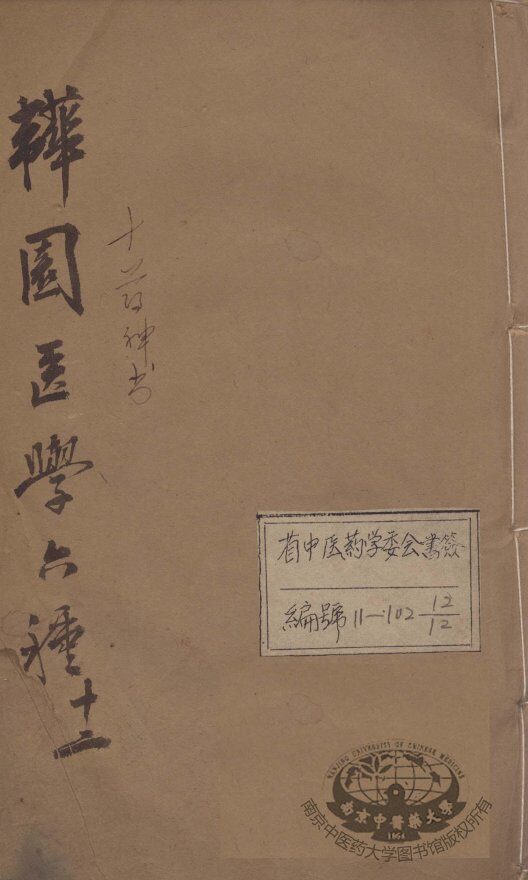 韡園医學六種 十二
十药神书
省中医药学委会書签
編號 11—102 12/12
NANJING UNIVERSITY OF CHINESE MEDICINE
南京中醫藥大學
1954
南京中医药大学图书馆版权所有